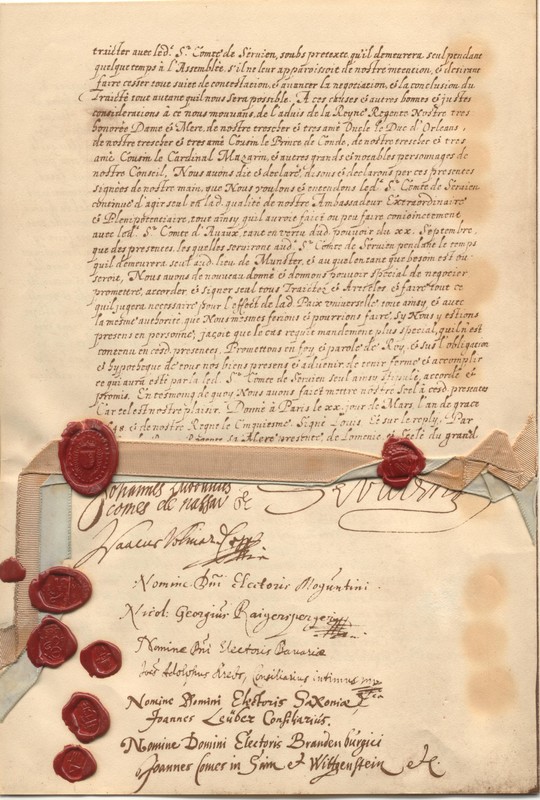 traicter avec led. Sr. Comte de Servien, soubs pretexte qu'il demeurera seul pendant
quelque temps à l'Assemblée, s'il ne leur apparoissoit de nostre intention, & desirant
faire cesser tout suiet de contestation, & auancer la negotiation, & la conclusion du
Traitté tout autant qu'il nous sera possible. A ces causes & autres bonnes & justes
considerations à ce nous mouvans, de l'aduis de la Reyne Regente Nostre tres
honorée Dame & Mere, de nostre trescher & tres amé Oncle le Duc d'Orleans,
de nostre trescher & tres amé Cousin le Prince de Condé, de nostre trescher & tres
amé Cousin le Cardinal Mazarin, & autres grands & notables personnages de
nostre Conseil, Nous avons dit & declaré, disons & declarons par ces presentes
signées de nostre main, que Nous voulons & entendons led. Sr. Comte de Servien
continue d'agir seul en lad. qualité de nostre Ambassadeur Extraordinaire
& Plenipotentiaire, tout ainsy qu'il auroit faict ou peu faire conioinctement
avec led. Sr. Comte d'Avaux, tant en vertu dud. pouvoir du xx. Septembre,
que des presentes, lesquelles serviront aud. Sr. Comte de Servien pendant le temps
qu'il demeurera seul aud. lieu de Munster, & au quel entant que besoin est ou
seroit, Nous avons de nouveau donné & donnons pouvoir special de negocier
promettre, accorder & signer seul tous Traittez & Articles & faire tout ce
qu'il jugera necessaire pour l'effect de lad. Paix universelle tout ainsy, & avec
la mesme authorité, que Nous mesmes ferions & pourrions faire, sy Nous y estions
presens en personne, jaçoit que le cas requit mandement plus special, qu'il n'est
contenu en cesd. presentes. Promettons en foy & parole de Roy, & sus l'obligation
& hypotheque de tous nos biens presens & advenir de tenir ferme & accomplir
ce qui aura esté par led. Sr. Comte de Servien seul ainsy stipulé, accordé &
promis. En tesmoing de quoy Nous avons faict mettre nostre seel à cesd. presentes
Car tel est nostre plaisir. Donné à Paris le xx. jour de Mars, l'an de grace
& de nostre Regne le Cinquiesme. Signé Louis. Et sur le reply, Par
la Reyne Regente sa Mere presente, de Lomenie, & seelé du grand
Johannes Ludovicus
comes de Nassau &c
Servien
Isaacus Volmar
Nomine Dni Electoris Moguntini.
Nicol. Georgius Raigersperger
Nomine Dni Electoris Bavariæ
Joes Adolphus Krebs, Consiliarius intimus mp
Nomine Domini Electoris Saxoniæ
Joannes Leüber Consiliarius.
Nomine Domini Electoris Brandenburgici
Joannes Comes in Sain & Wittgenstein &c.